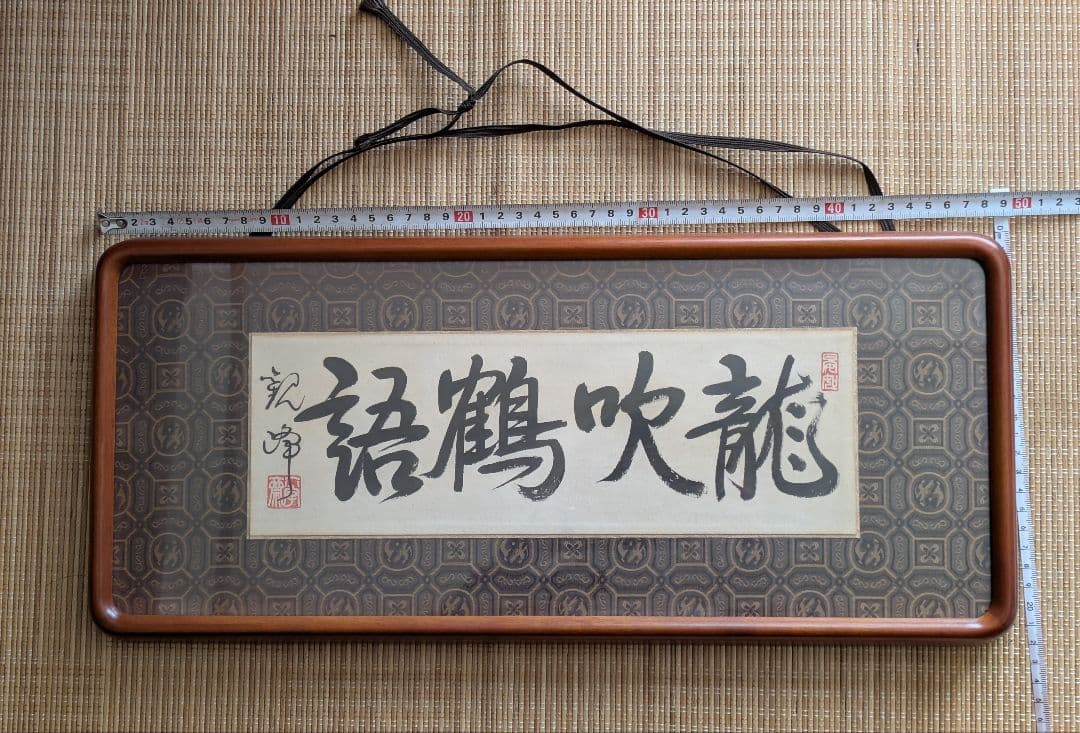 龍吹鶴語
観峰
2 3 4 5 6 7 8 9 10 1 2 3 4 5 6 7 8 9 20 1 2 3 4 5 6 7 8 9 30 1 2 3 4 5 6 7 8 9 40 1 2 3 4 5 6 7 8 9 50 1 2 3